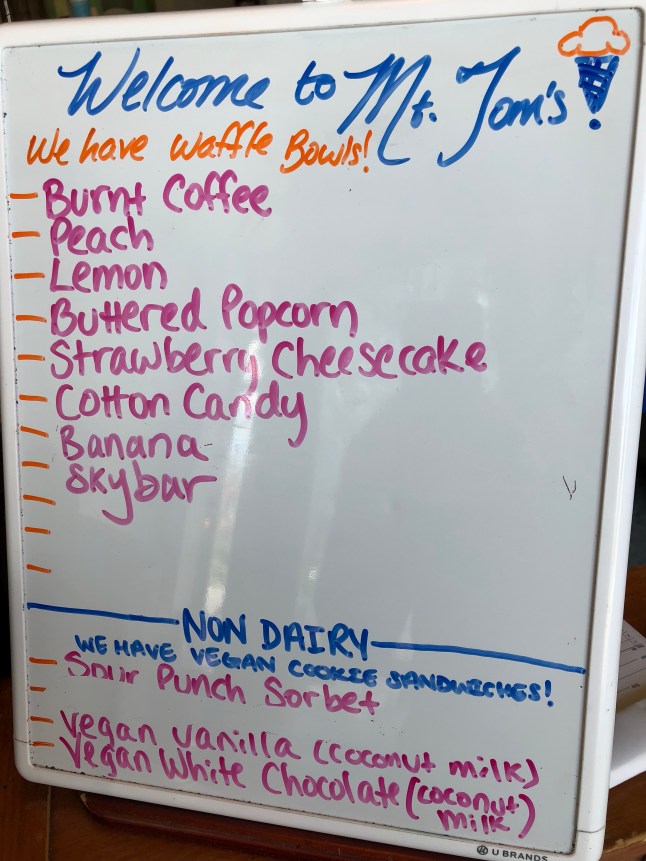 Welcome to Mt. Tom's!
We have Waffle Bowls!
- Burnt Coffee
- Peach
- Lemon
- Buttered Popcorn
- Strawberry Cheesecake
- Cotton Candy
- Banana
- Skybar
NON DAIRY
WE HAVE VEGAN COOKIE SANDWICHES!
- Sour Punch Sorbet
- Vegan Vanilla (coconut milk)
- Vegan White Chocolate (coconut milk)
U BRANDS